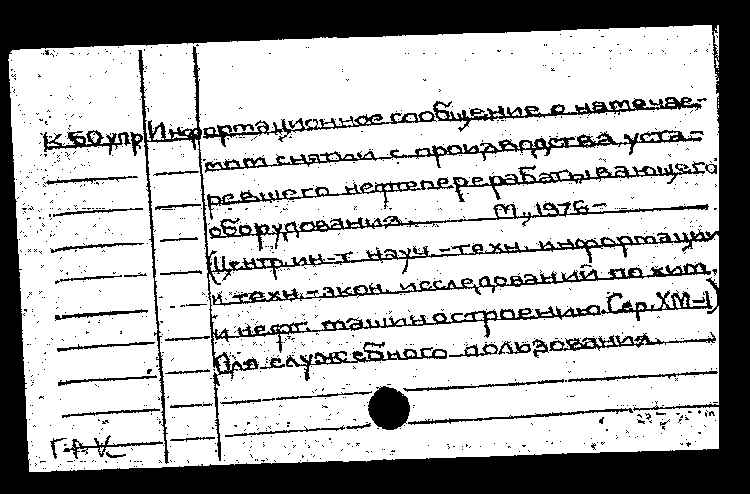 К50упр Информационное сообщение о намечае-
мом снятии с производства уста-
ревшего нефтеперерабатывающего
оборудования. М., 1976-
(Центр. ин-т науч.-техн. информации
и техн.-экон. исследований по хим.
и нефт. машиностроению. Сер. ХМ-1)
Для служебного пользования.
Г.А К